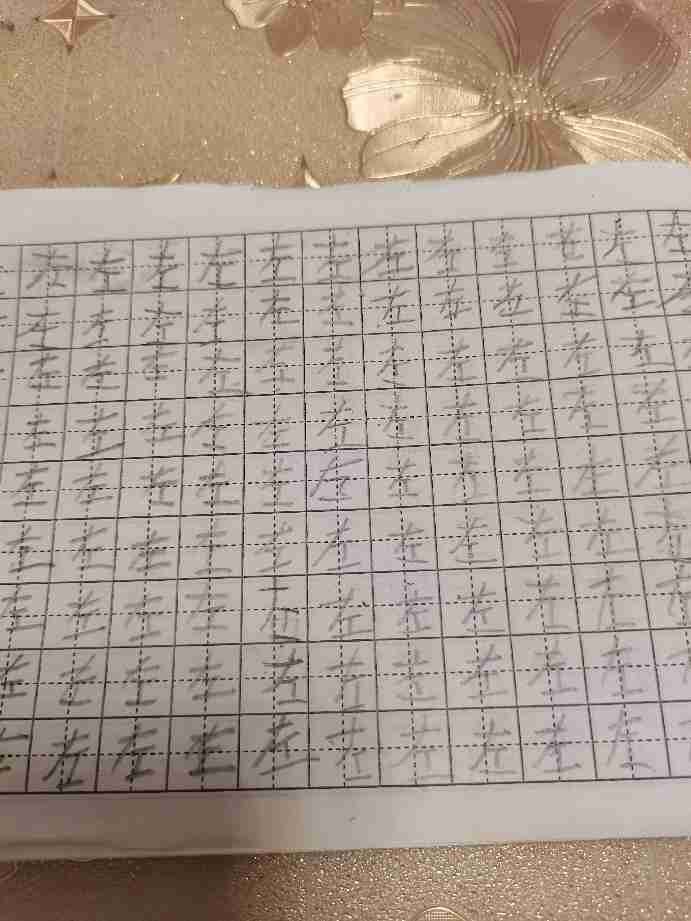 左左左左左左左左左左左左
左左左左左左左左左左左左
左左左左左左左左左左左
左左左左左左左左左左左
左左左左左左左左左左左
左左左左左左左左左左左
左左左左左左左左左左左
左左左左左左左左左左
左左左左左左左左左